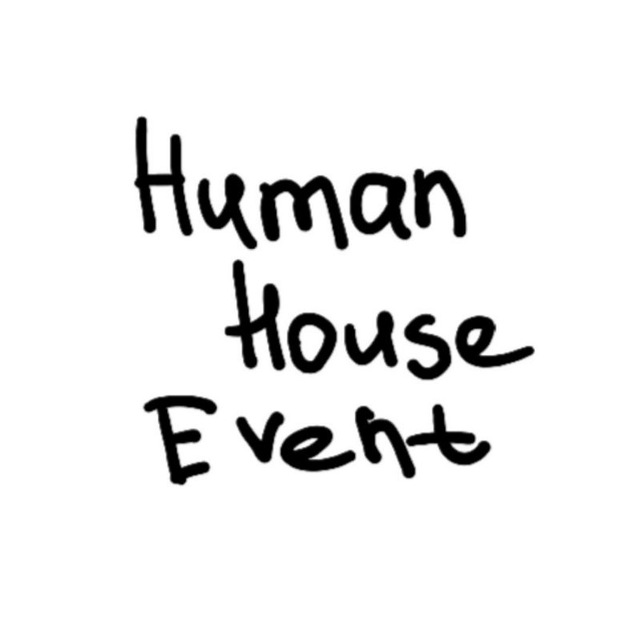 Human
House
Event